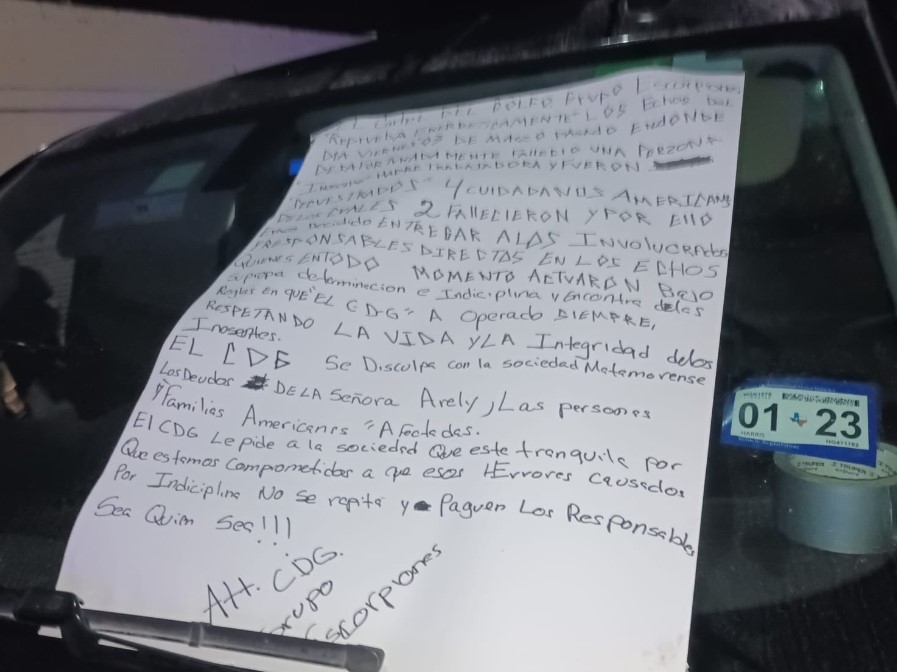 EL CARTEL DEL GOLFO GRUPO Escorpiones
"REPRUEBA ENERGICAMENTE" LOS Echos DEL
DIA VIERNES 03 DE MARZO PASADO EN DONDE
DESAFORTUNADAMENTE FALLECIO UNA PERZONA
INOCENTE MADRE TRABAJADORA Y FUERON
"SECUESTRADOS" 4 CUIDADANOS AMERICANS
DE LOS CUALES 2 FALLECIERON Y POR Ello
Emos decidido ENTREGAR A LOS INVOLUCRADOS
Y RESPONSABLES DIRECTOS EN LOS ECHOS
QUIENES EN TODO MOMENTO ACTUARON BAJO
su propia determinacion e Indiciplina y Encontra de las
Reglas En QUE "EL CDG" A Operado SIEMPRE,
RESPETANDO LA VIDA Y LA Integridad de los
Inosentes.
EL CDG Se Disculpa con la sociedad Matamorense
Los Deudos DE LA Señora Arely, Las personas
Y Familias Americanas "Afectadas.
El CDG Le pide a la sociedad Que este tranquila por
Que estamos Comprometidos a que esos Errores causados
Por Indiciplina No se repita y Paguen Los Responsables
Sea Quim Sea!!!
Att. CDG.
Grupo
Escorpiones
01 23
HARRIS